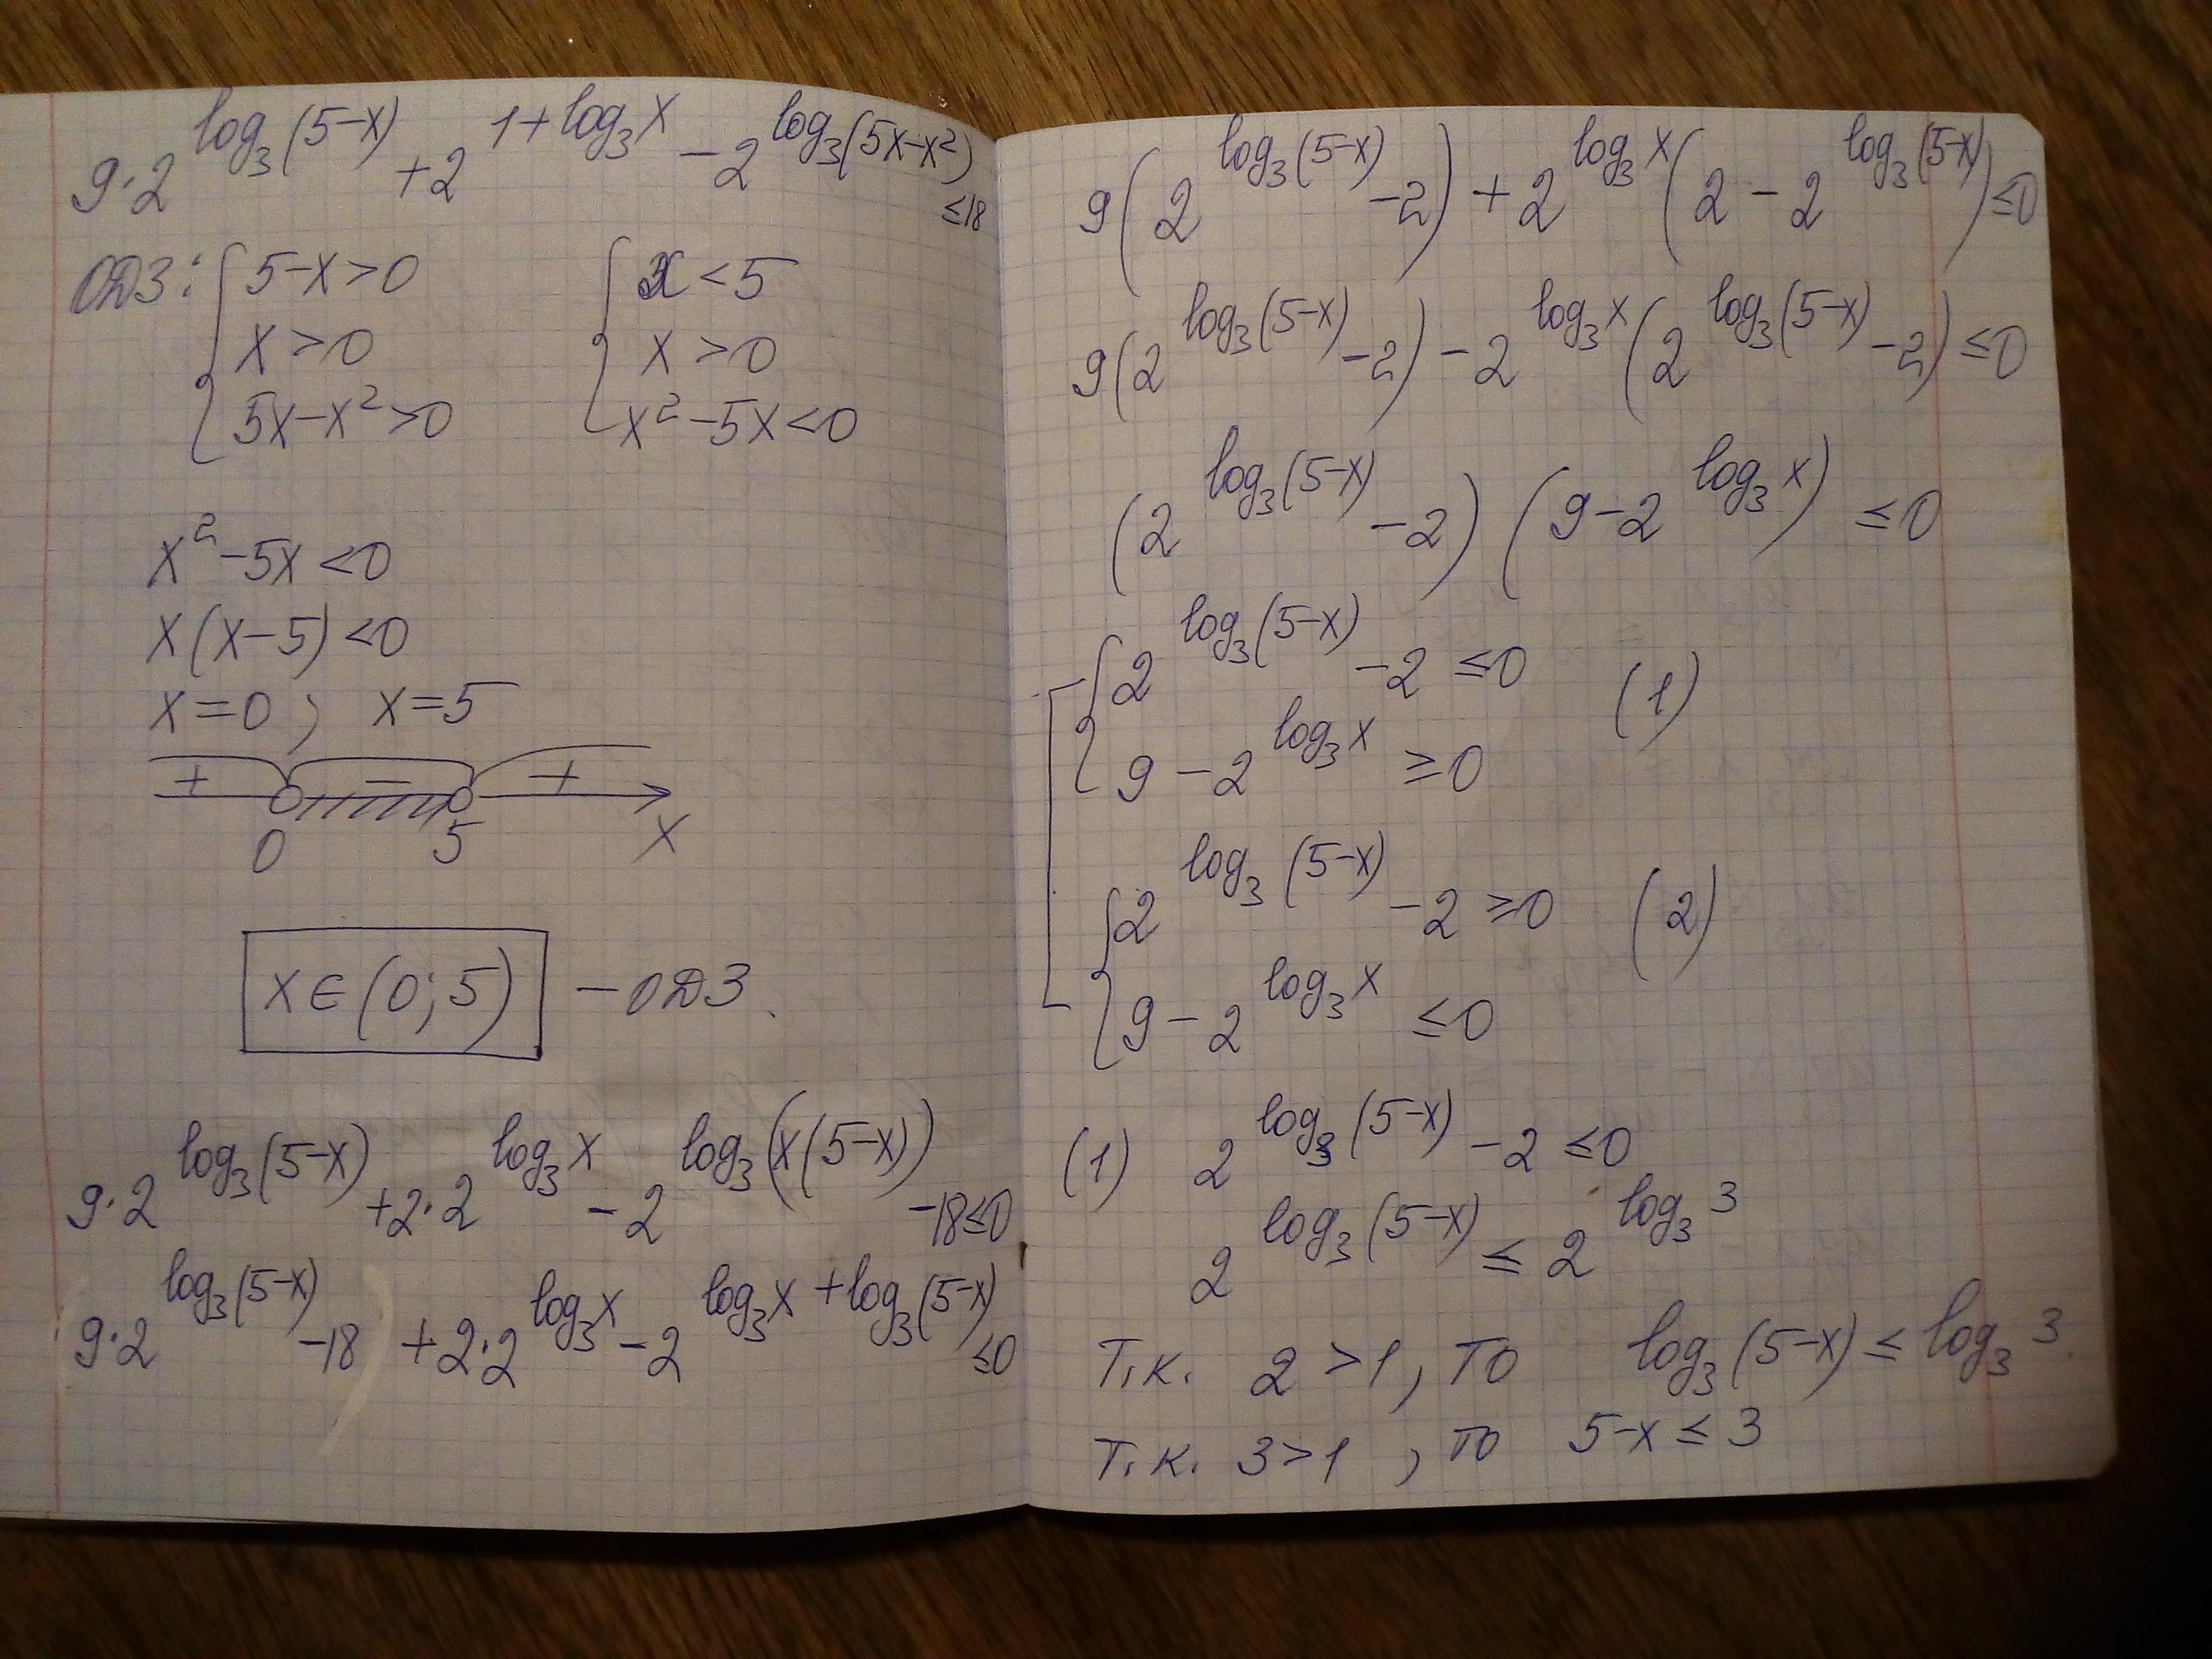 9·2^(log₃(5-x)) + 2^(1+log₃x) - 2^(log₃(5x-x²)) ≤18
ОДЗ: { 5-x>0 { x<5
x>0 x>0
5x-x²>0 x²-5x<0
x²-5x<0
x(x-5)<0
x=0; x=5
+ - +
0 5 x
x∈(0;5) - ОДЗ.
9·2^(log₃(5-x)) + 2·2^(log₃x) - 2^(log₃(x(5-x))) -18≤0
9·2^(log₃(5-x)) -18 + 2·2^(log₃x) - 2^(log₃x+log₃(5-x)) ≤0
9(2^(log₃(5-x)) -2) + 2^(log₃x) (2 - 2^(log₃(5-x))) ≤0
9(2^(log₃(5-x)) -2) - 2^(log₃x) (2^(log₃(5-x)) -2) ≤0
(2^(log₃(5-x)) -2) (9-2^(log₃x)) ≤0
[ { 2^(log₃(5-x)) -2 ≤0 (1)
9 - 2^(log₃x) ≥0
{ 2^(log₃(5-x)) -2 ≥0 (2)
9 - 2^(log₃x) ≤0
(1) 2^(log₃(5-x)) -2 ≤0
2^(log₃(5-x)) ≤ 2^(log₃3)
Т.к. 2>1, то log₃(5-x) ≤ log₃3.
Т.к. 3>1, то 5-x ≤ 3